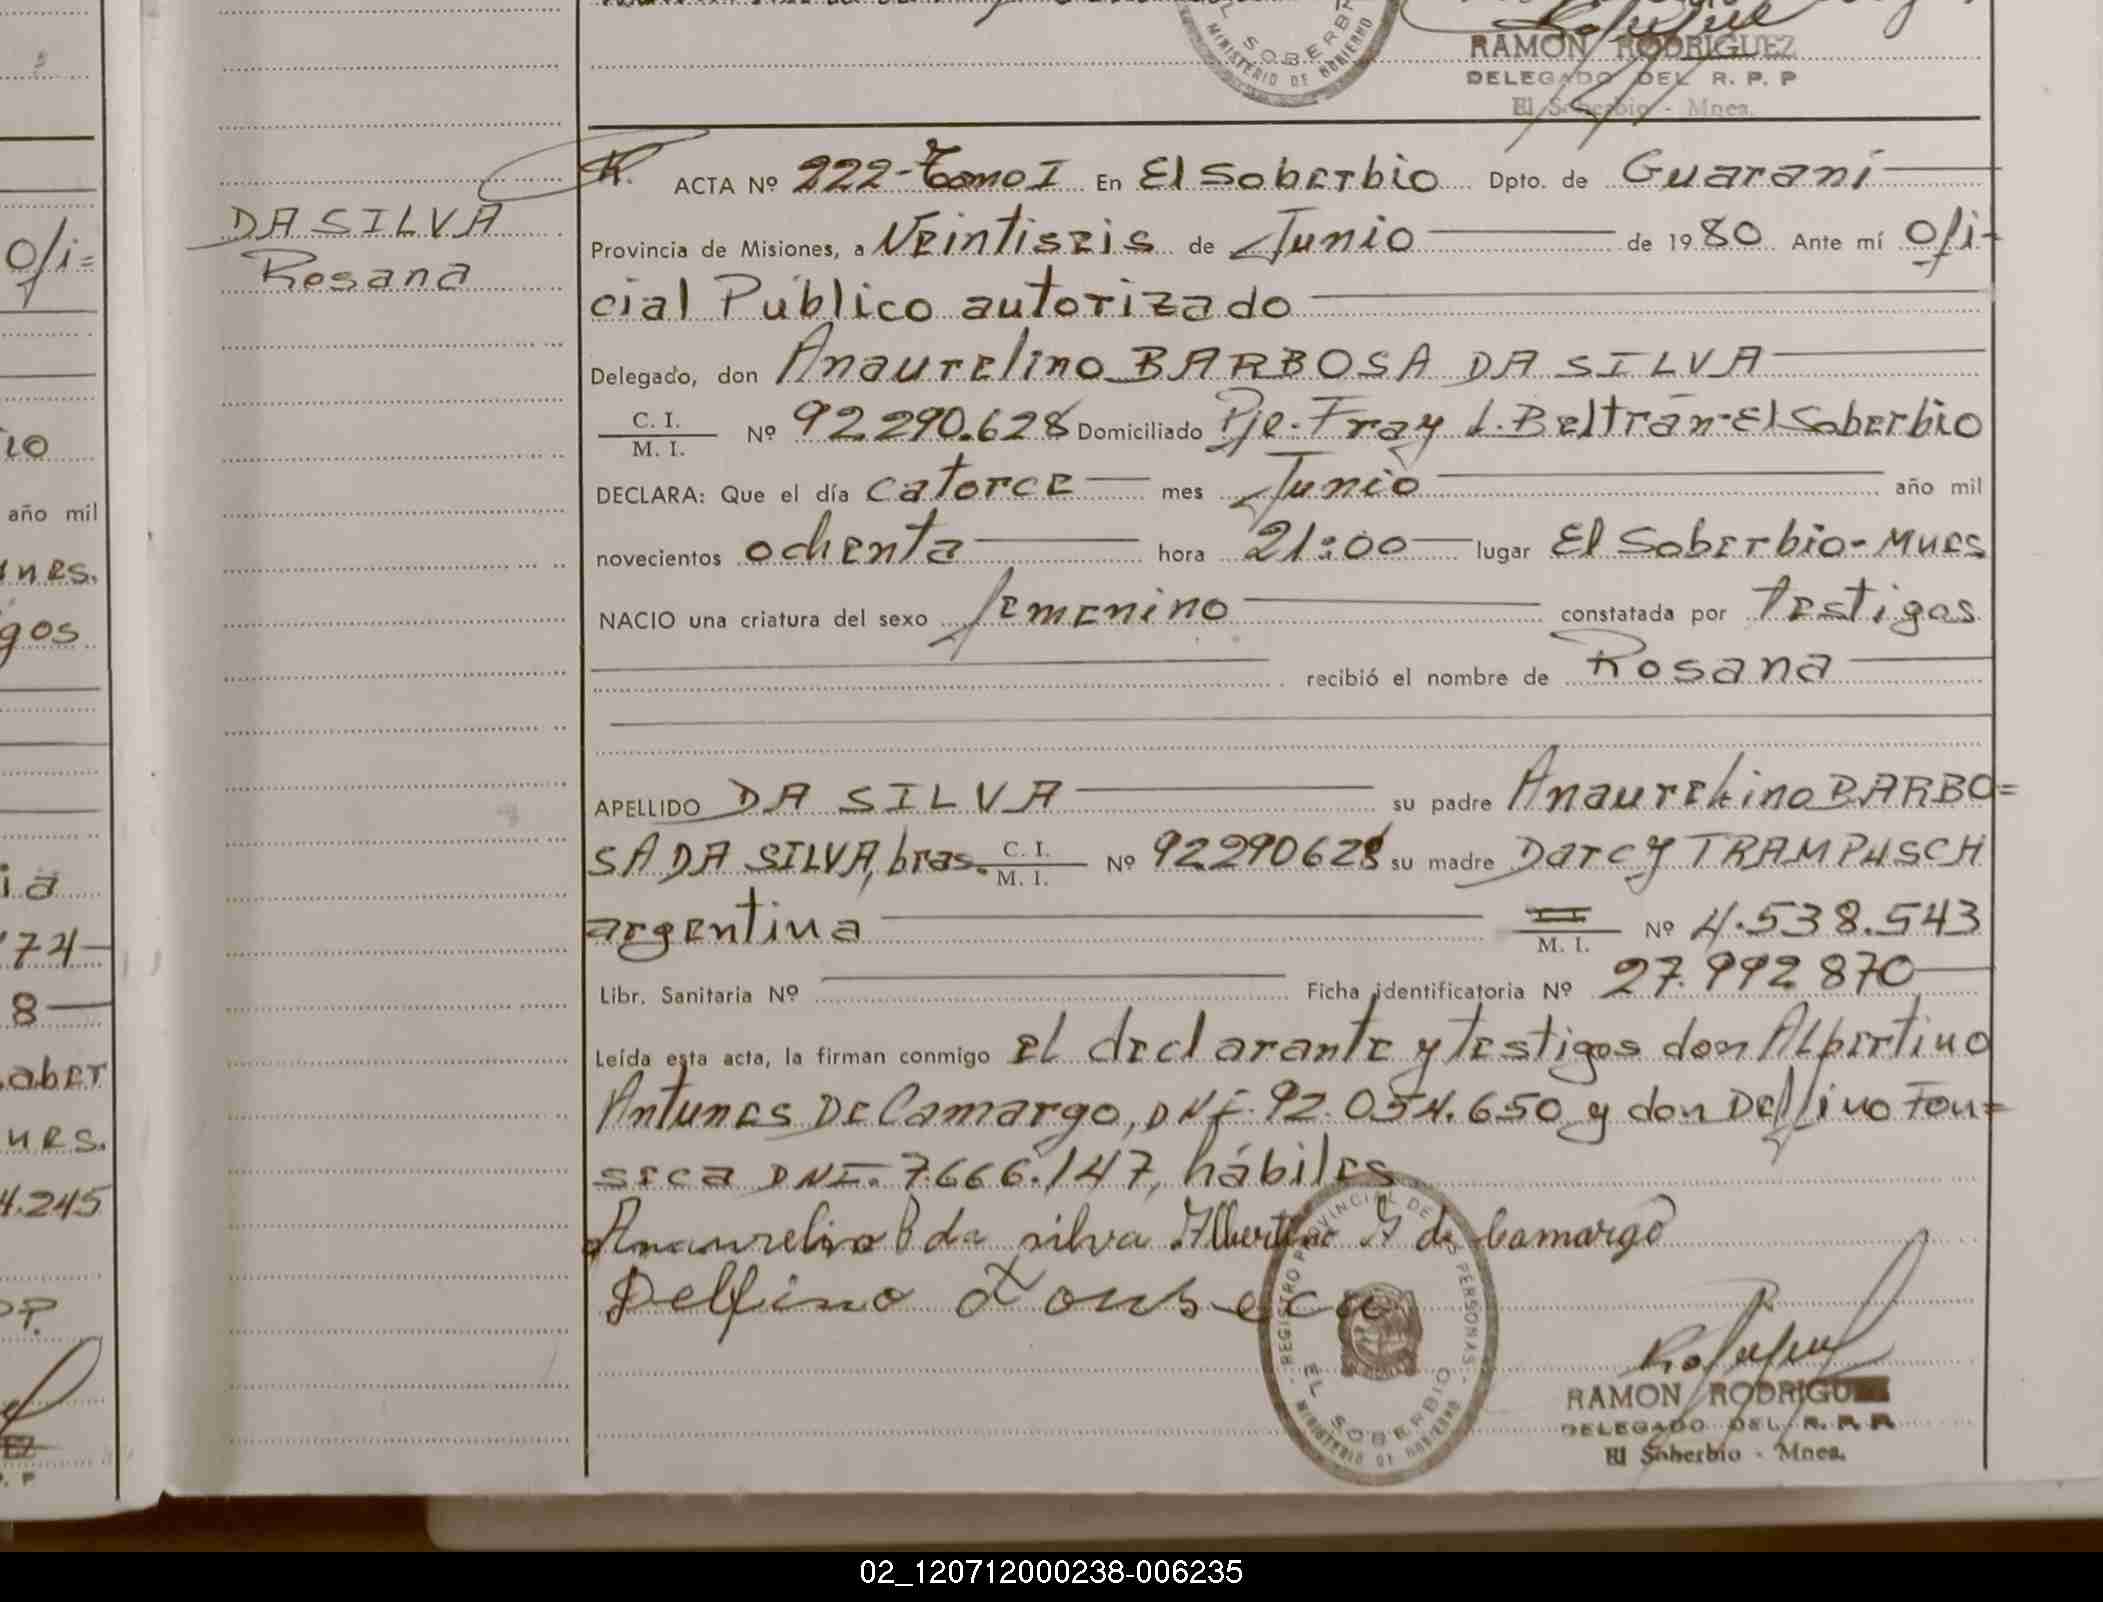 SOBERBIO
MINISTERIO DE GOBIERNO
RAMON RODRIGUEZ
DELEGADO DEL R. P. P
El Soberbio - Mnes.
ACTA Nº 222-Tomo I En El Soberbio Dpto. de Guaraní
DA SILVA
Rosana
Provincia de Misiones, a Veintiseis de Junio de 1980 Ante mí Ofi-
cial Público autorizado
Delegado, don Anaurelino BARBOSA DA SILVA
C. I.
M. I. Nº 92.290.628 Domiciliado Pje. Fray L. Beltrán-El Soberbio
DECLARA: Que el día catorce mes Junio año mil
novecientos ochenta hora 21:00 lugar El Soberbio-Mnes
NACIO una criatura del sexo femenino constatada por testigos
recibió el nombre de Rosana
APELLIDO DA SILVA su padre Anaurelino BARBO=
SA DA SILVA, bras. C. I.
M. I. Nº 92290628 su madre Darcy TRAMPUSCH
argentina M. I. Nº 4.538.543
Libr. Sanitaria Nº Ficha identificatoria Nº 27.992870
Leída esta acta, la firman conmigo el declarante y testigos don Albertino
Antunes De Camargo, DNI. 92.054.650 y don Delfino Fon=
seca DNI. 7.666.147, hábiles
Anaurelino B da silva Albertino A de Camargo
Delfino Fonseca
REGISTRO PROVINCIAL DE PERSONAS
EL SOBERBIO
MINISTERIO DE GOBIERNO
RAMON RODRIGUEZ
DELEGADO DEL R. P. P
El Soberbio - Mnes.
Ofi=
io
año mil
nes.
gos
ia
74
8
aber
nes.
4.245
02_120712000238-006235